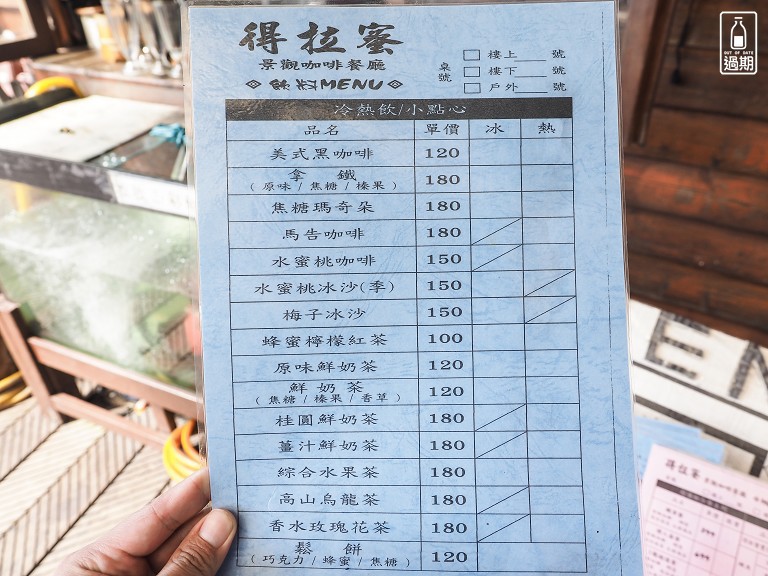 得拉蜜
景觀咖啡餐廳
飲料MENU
桌號
樓上 號
樓下 號
戶外 號
冷熱飲/小點心
品名 單價 冰 熱
美式黑咖啡 120
拿鐵 180
(原味/焦糖/榛果)
焦糖瑪奇朵 180
馬告咖啡 180
水蜜桃咖啡 150
水蜜桃冰沙(季) 150
梅子冰沙 150
蜂蜜檸檬紅茶 100
原味鮮奶茶 120
鮮奶茶 120
(焦糖/榛果/香草)
桂圓鮮奶茶 180
薑汁鮮奶茶 180
綜合水果茶 180
高山烏龍茶 180
香水玫瑰花茶 180
鬆餅 120
(巧克力/蜂蜜/焦糖)
OUT OF DATE
過期
EN
得拉蜜